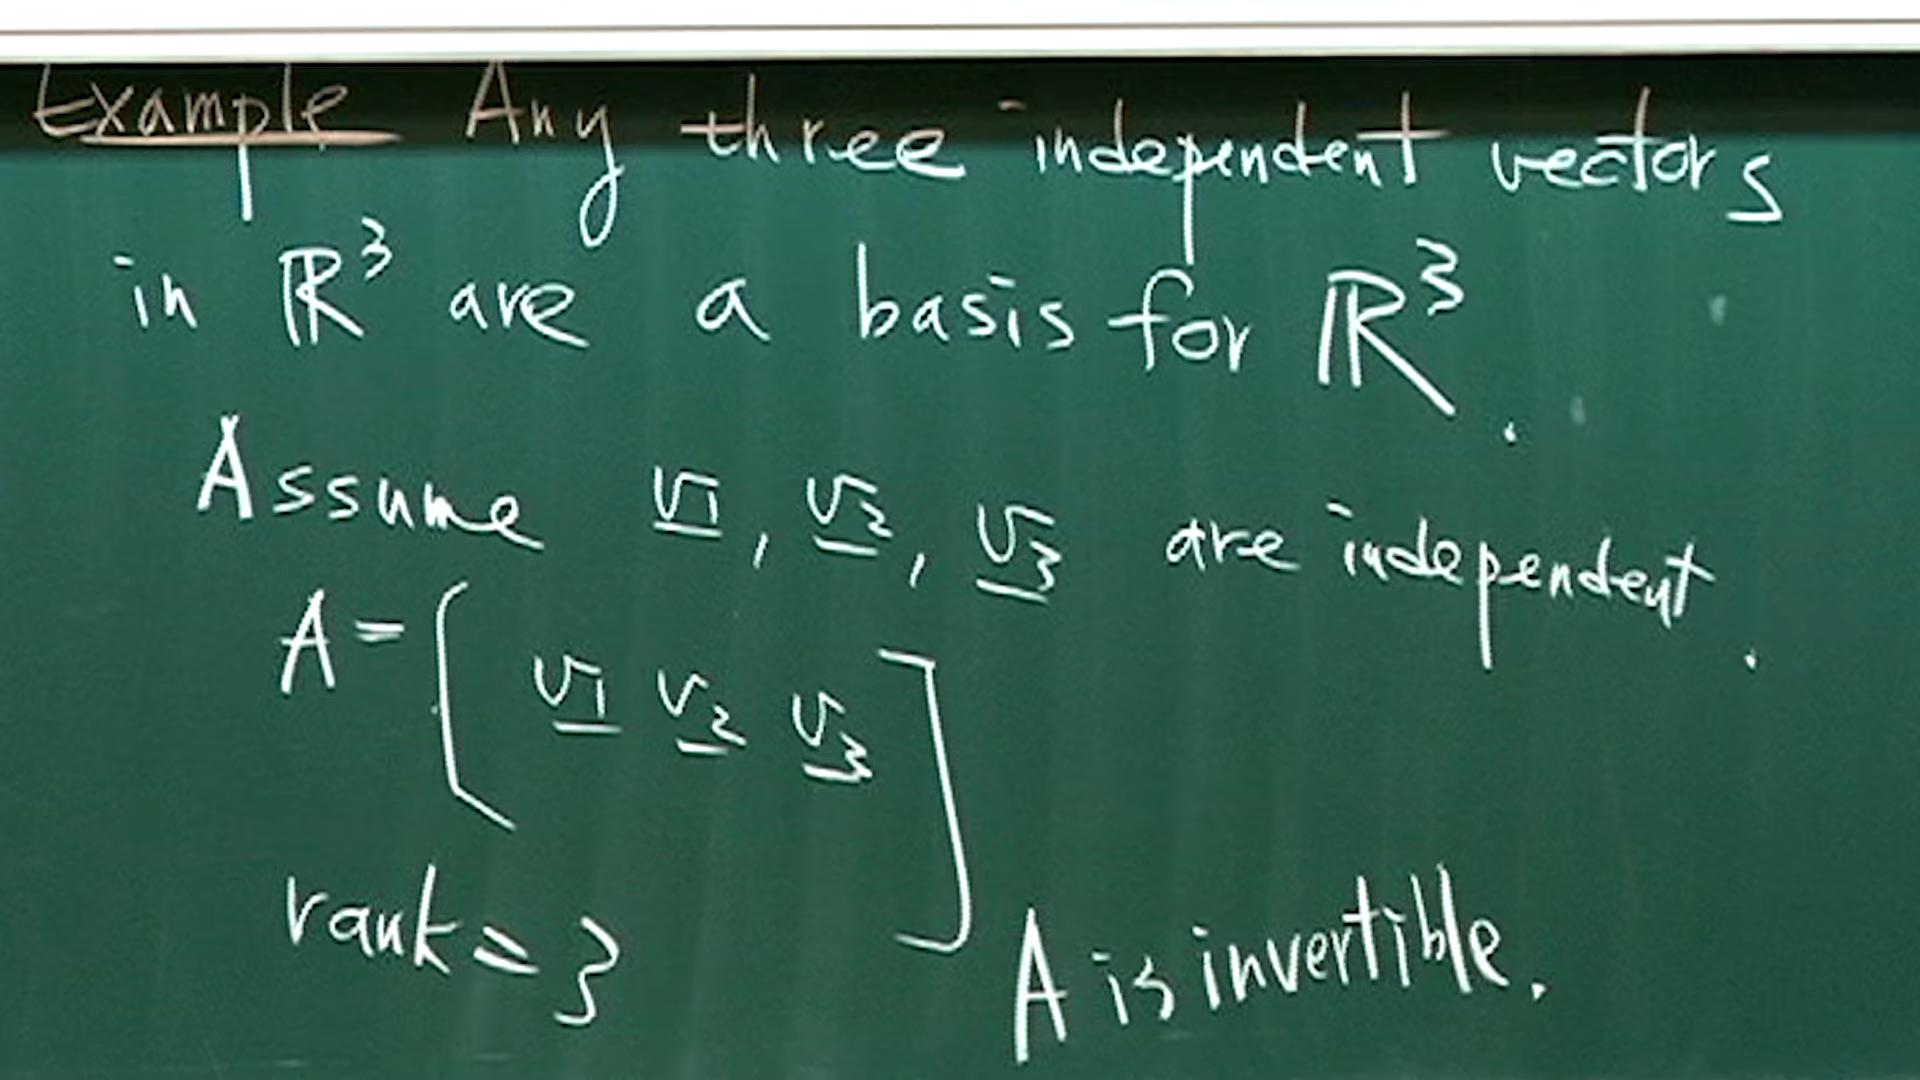 Example Any three independent vectors
in ℝ³ are a basis for ℝ³.
Assume v₁, v₂, v₃ are independent.
A = [ v₁ v₂ v₃ ]
rank = 3 A is invertible.